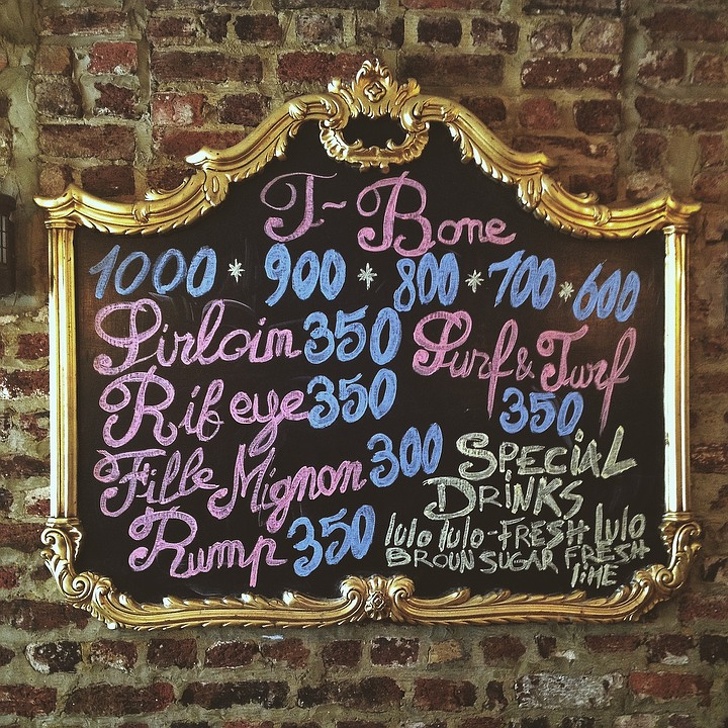 T-Bone
1000 * 900 * 800 * 700 * 600
Sirloin 350
Surf & Turf
350
Rib eye 350
Fille Mignon 300
Rump 350
SPECIAL
DRINKS
lulo lulo-FRESH lulo
BROUN SUGAR FRESH
lime